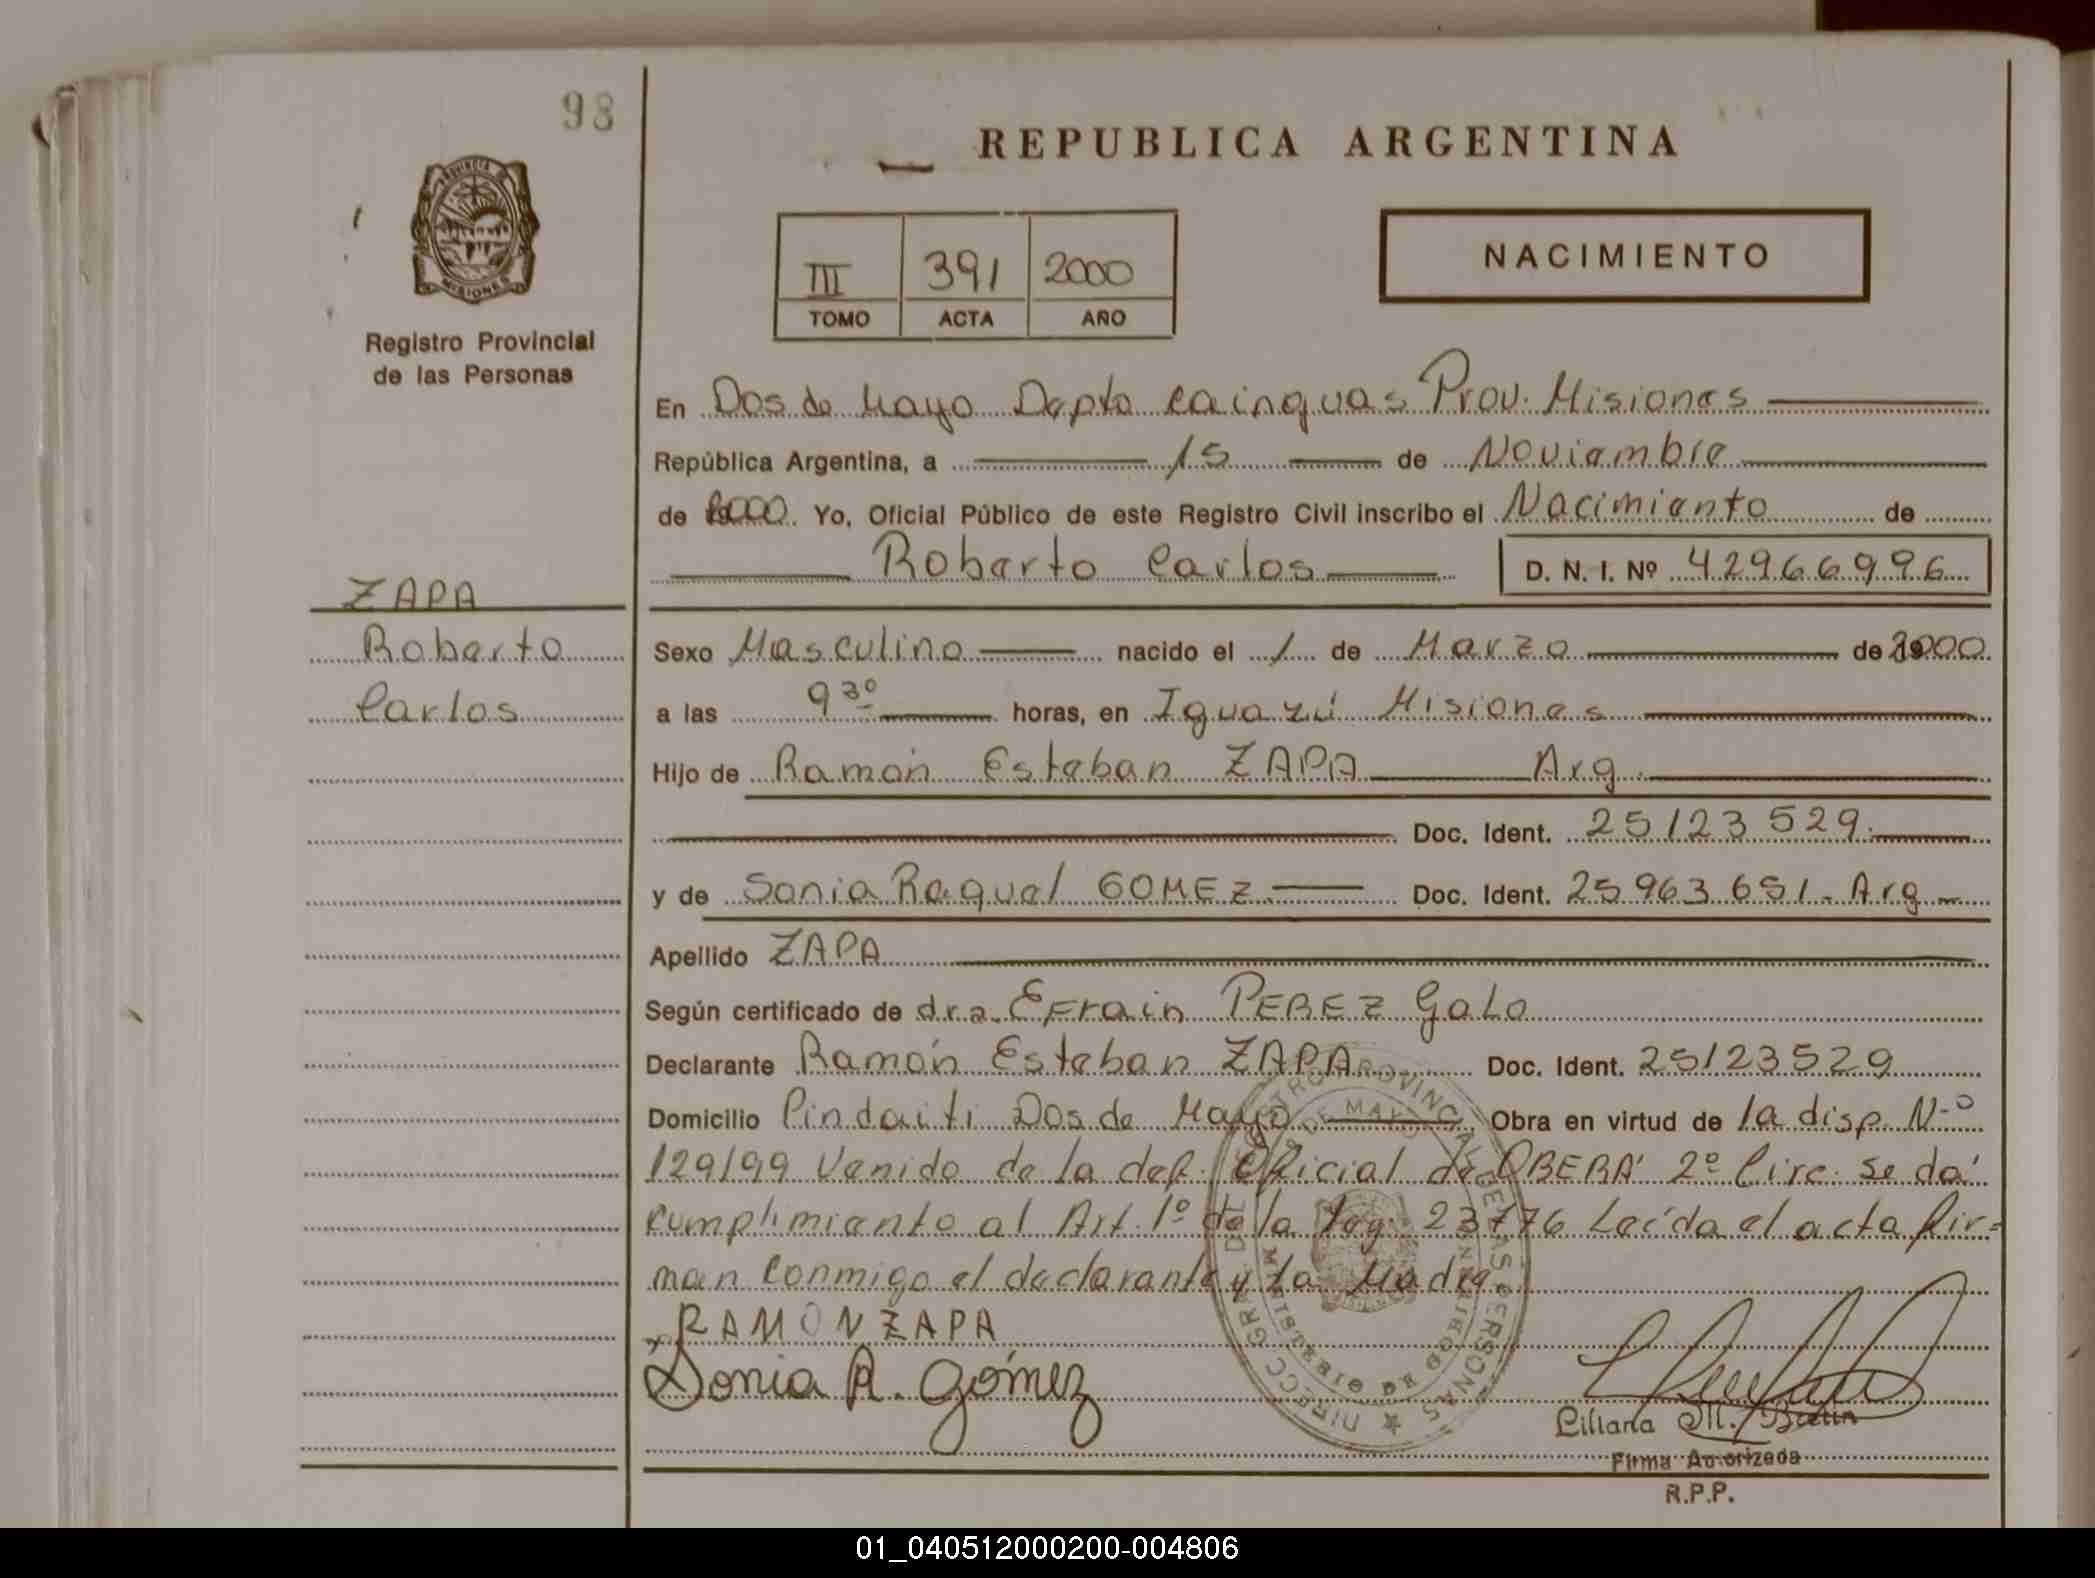 98
REPUBLICA ARGENTINA
PROVINCIA DE
MISIONES
Registro Provincial
de las Personas
III 391 2000
TOMO ACTA AÑO
NACIMIENTO
En Dos de Mayo Depto Cainguas Prov. Misiones
República Argentina, a 15 de Noviembre
de 2000. Yo, Oficial Público de este Registro Civil inscribo el Nacimiento de
Roberto Carlos D. N. I. Nº 42966996
ZAPA
Roberto
Carlos
Sexo Masculino nacido el 1 de Marzo de 2000
a las 9 30 horas, en Iguazú Misiones
Hijo de Ramón Esteban ZAPA Arg.
Doc. Ident. 25123529.
y de Sonia Raquel GOMEZ Doc. Ident. 25963651. Arg
Apellido ZAPA
Según certificado de dra. Efrain PEREZ Galo
Declarante Ramón Esteban ZAPA Doc. Ident. 25123529
Domicilio Pindaiti Dos de Mayo Obra en virtud de la disp. Nº
129/99 Venido de la def. Oficial de OBERÁ 2º Circ. se dá
cumplimiento al Art. 1º de la ley 23776 Leída el acta fir=
man conmigo el declarante y la Madre.
RAMON ZAPA
Sonia R. Gómez
Liliana M.
Firma Autorizada
R.P.P.
01_040512000200-004806